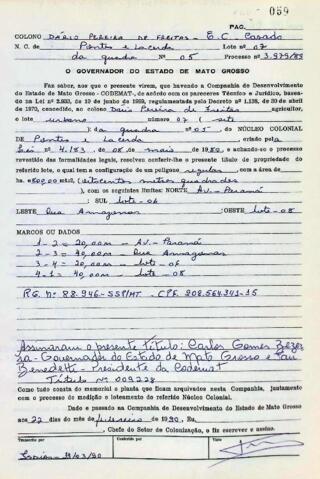 PAG. 059
COLONO DÁRIO PEREIRA DE FREITAS - E.C. Casado
N. C. de Pontes e Lacerda Lote nº 07
da quadra Nº 05 Processo 3.979/89
O GOVERNADOR DO ESTADO DE MATO GROSSO
Faz saber, aos que o presente virem, que havendo a Companhia de Desenvolvimento
do Estado de Mato Grosso - CODEMAT-, de acôrdo com os pareceres Técnico e Jurídico, basea-
do na Lei nº 2.933, de 10 de junho de 1969, regulamentada pelo Decreto nº 1.138, de 30 de abril
de 1970, concedido, ao colono Dário Pereira de Freitas agricultor,
o lote urbano número 07 (sete
); da quadra nº 05 NÚCLEO COLONIAL
DE Pontes e Lacerda criado pela
Lei 4.153, de 08 de maio de 1980, e achando-se o processo
revestido das formalidades legais, resolveu conferir-lhe o presente título de propriedade do
referido lote, o qual tem a configuração de um polígono regular, com a área de
800,00 mts2, (oitocentos metros quadrados
), com os seguintes limites: NORTE Av. Paraná
; SUL lote-06
LESTE Rua Amazonas ; OESTE lote-08
MARCOS OU DADOS
1-2= 20,00m - Av. - Paraná
2-3= 40,00m - Rua Amazonas
3-4= 20,00m - lote - 06
4-1= 40,00m - lote - 08
RG. nº 88.946-SSP/MT. CPF. 208.564.341-15
Assinaram o presente título: Carlos Gomes Bezer
ra - Governador do Estado de Mato Grosso e
Benedetti - Presidente da Codemat
Título nº 009228
Como tudo consta do memorial e planta que ficam arquivados nesta Companhia, juntamente
com o processo de medição e loteamento do referido Núcleo Colonial.
Dado e passado na Companhia de Desenvolvimento do Estado de Mato Grosso
aos 22 dias do mês de fevereiro de 1990. Eu,
, Chefe do Setor de Colonização, o fiz escrever e assino.
Transcrito por Conferido por Visto